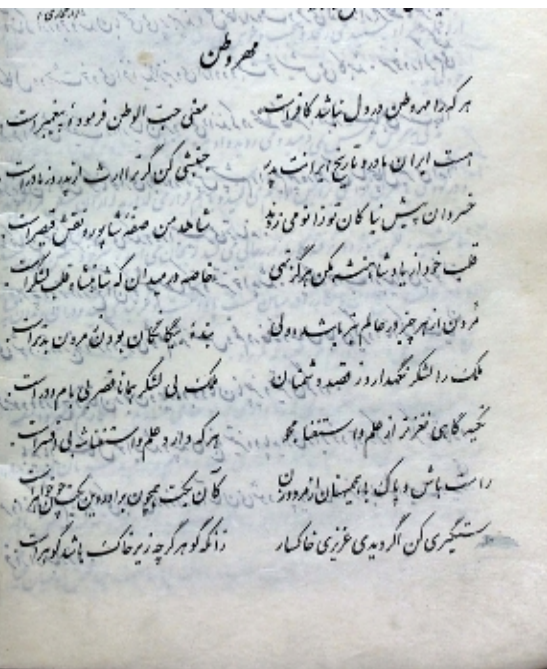 مهر وطن
هر که را مهر وطن در دل نباشد کافر است معنی حب الوطن فرمودهٔ پیغمبر است.
هست ایران مادر و تاریخ ایرانت پدر جنبشی کن گر ترا ارث از پدر وز مادر است.
خسروان پیش نیاکان تو زانو می زدند شاهد من صفهٔ شاپور و نقش قیصر است
قلب خود از یاد شاهنشه مکن هرگز تهی خاصه در میدان که شاهنشاه قلب لشکر است.
مردن از هر چیز در عالم بتر باشد ولی بندهٔ بیگانگان بودن ز مردن بدتر است.
ملک را لشکر نگهدارد ز قصد دشمنان ملک بی لشکر همانا قصر بی بام و در است.
تکیه گاهی نغزتر از علم و استغنا مجو هر که دارد علم و استغناء شه بی افسر است.
راست باش و پاک با همجنسان از مرد و زن کان یکیت همچون برادر وین یکت چون خواهر است
دستگیری کن اگر دیدی عزیزی خاکسار زانکه گوهر گرچه زیر خاک باشد گوهر است.